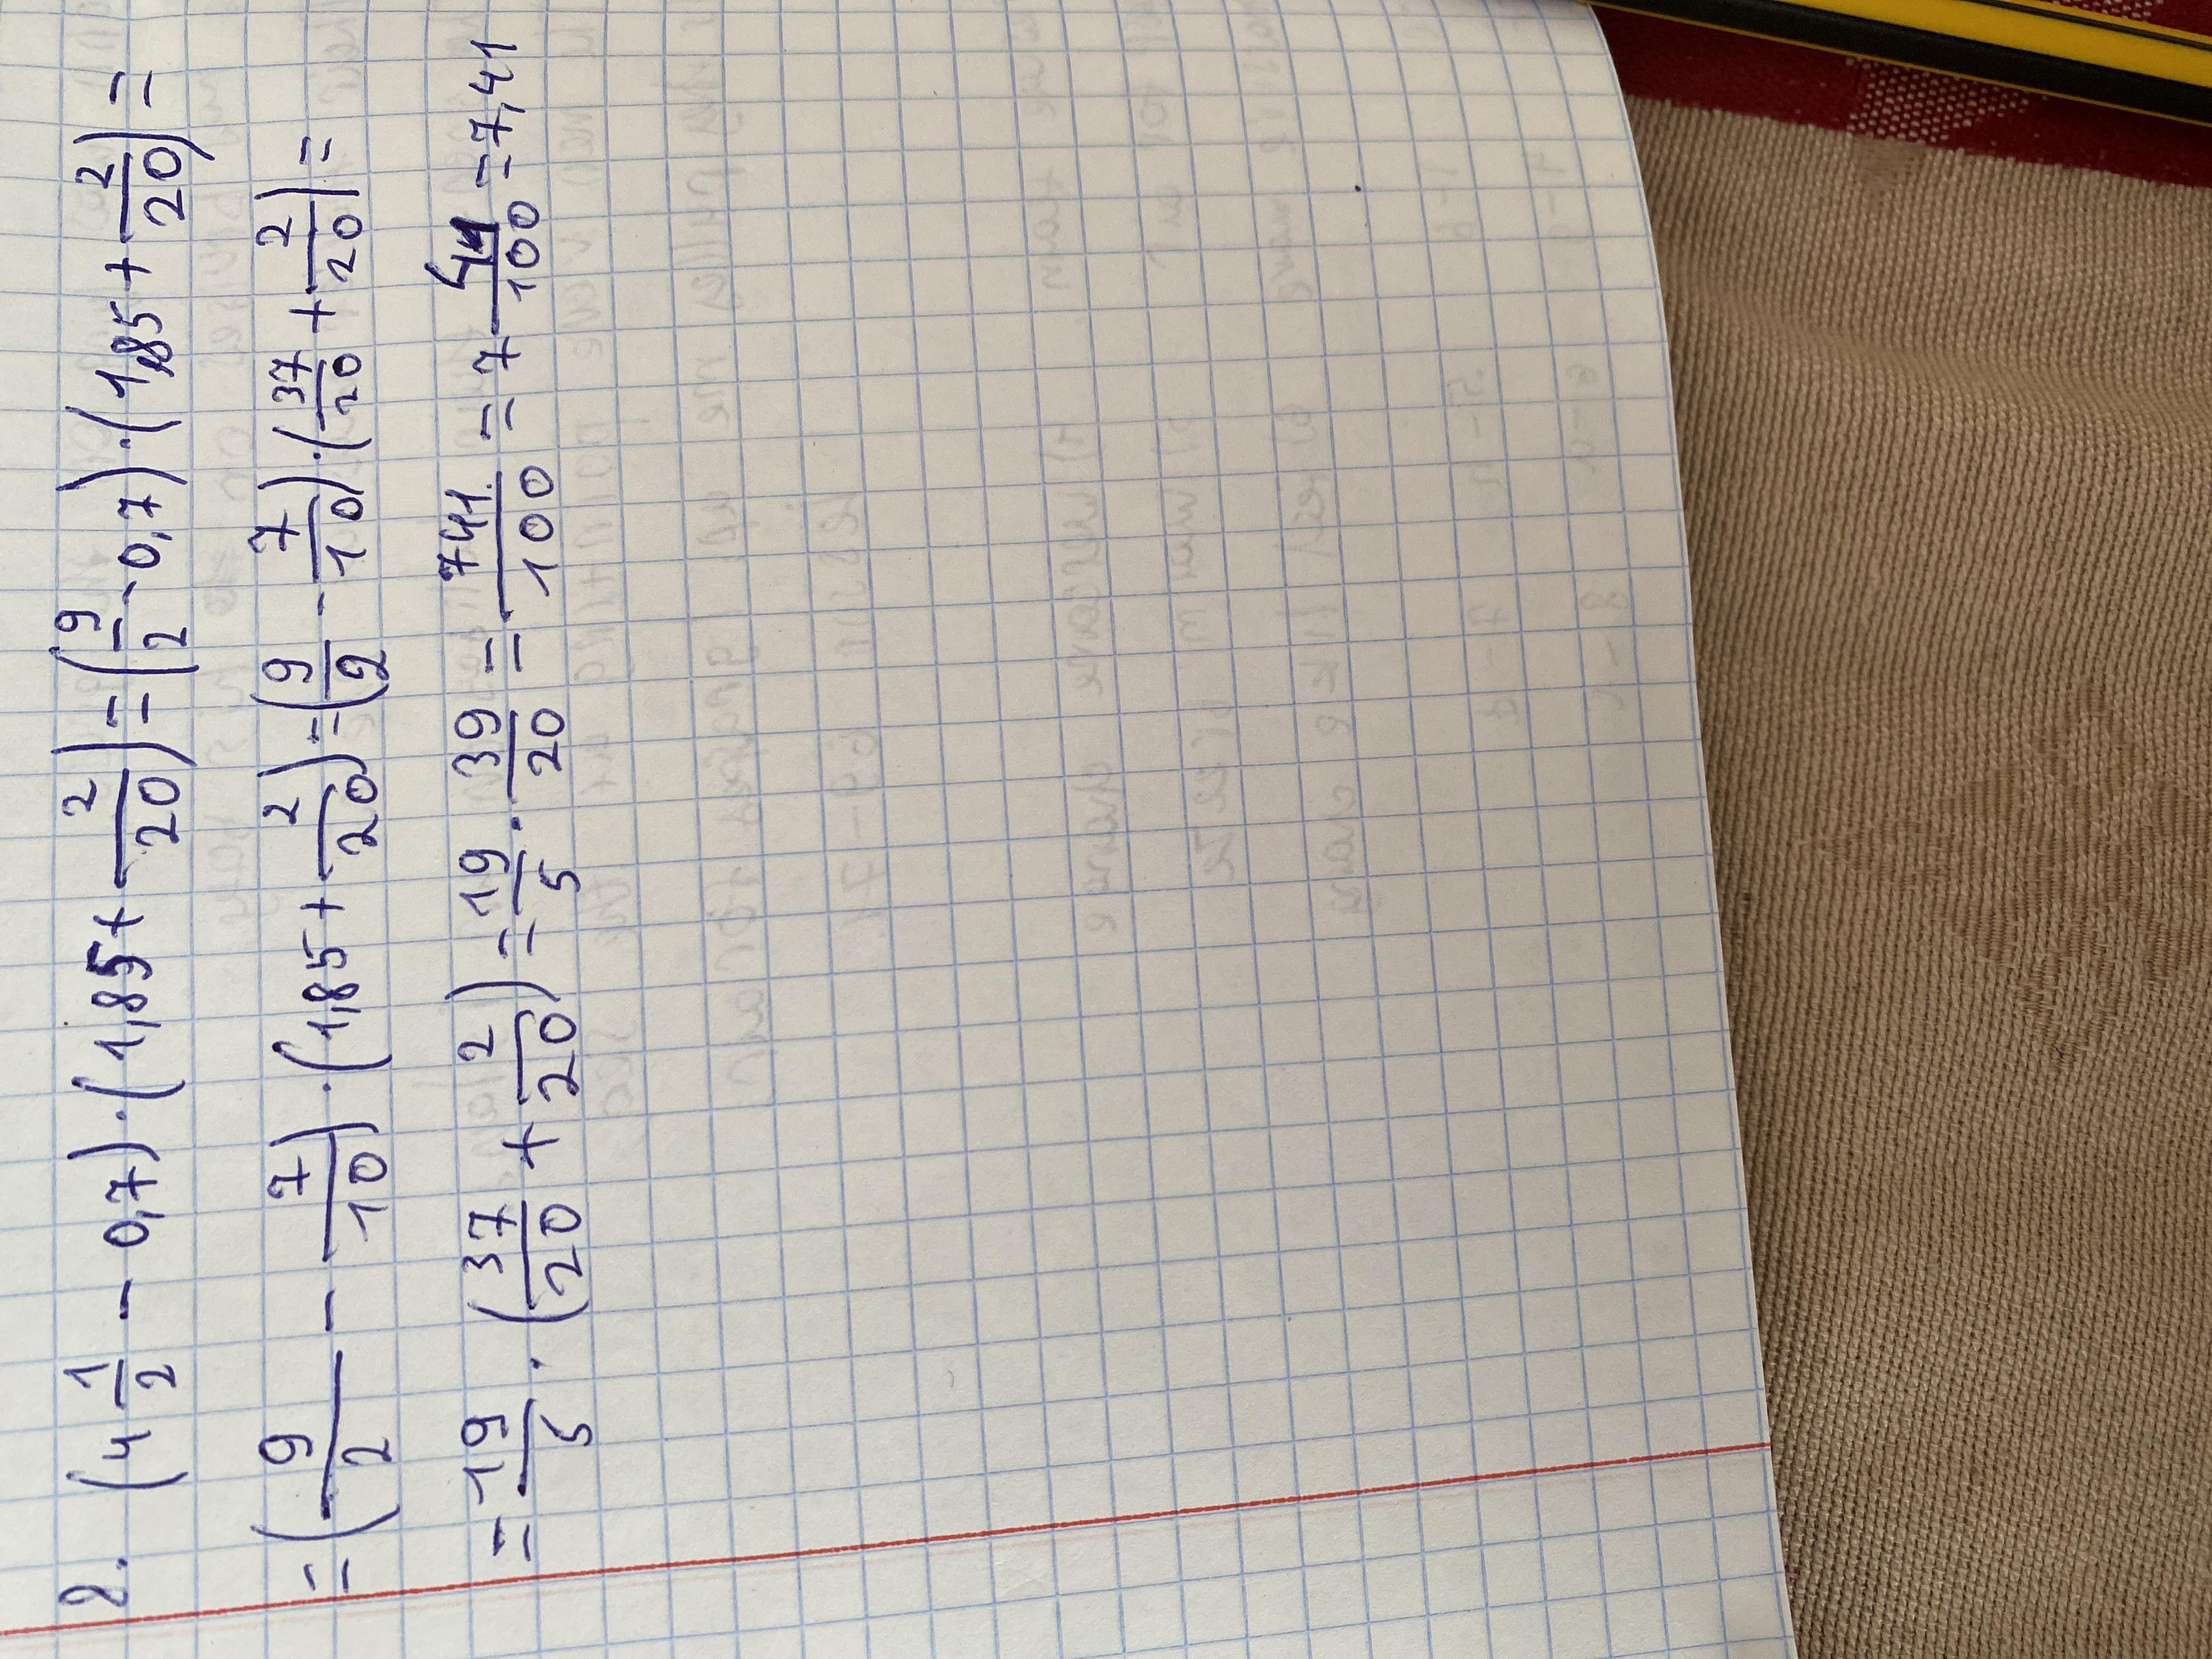 2. (4 1/2 - 0,7) · (1,85 + 2/20) = (9/2 - 0,7) · (1,85 + 2/20) =
= (9/2 - 7/10) · (1,85 + 2/20) = (9/2 - 7/10) · (37/20 + 2/20) =
= 19/5 · (37/20 + 2/20) = 19/5 · 39/20 = 741/100 = 7 41/100 = 7,41